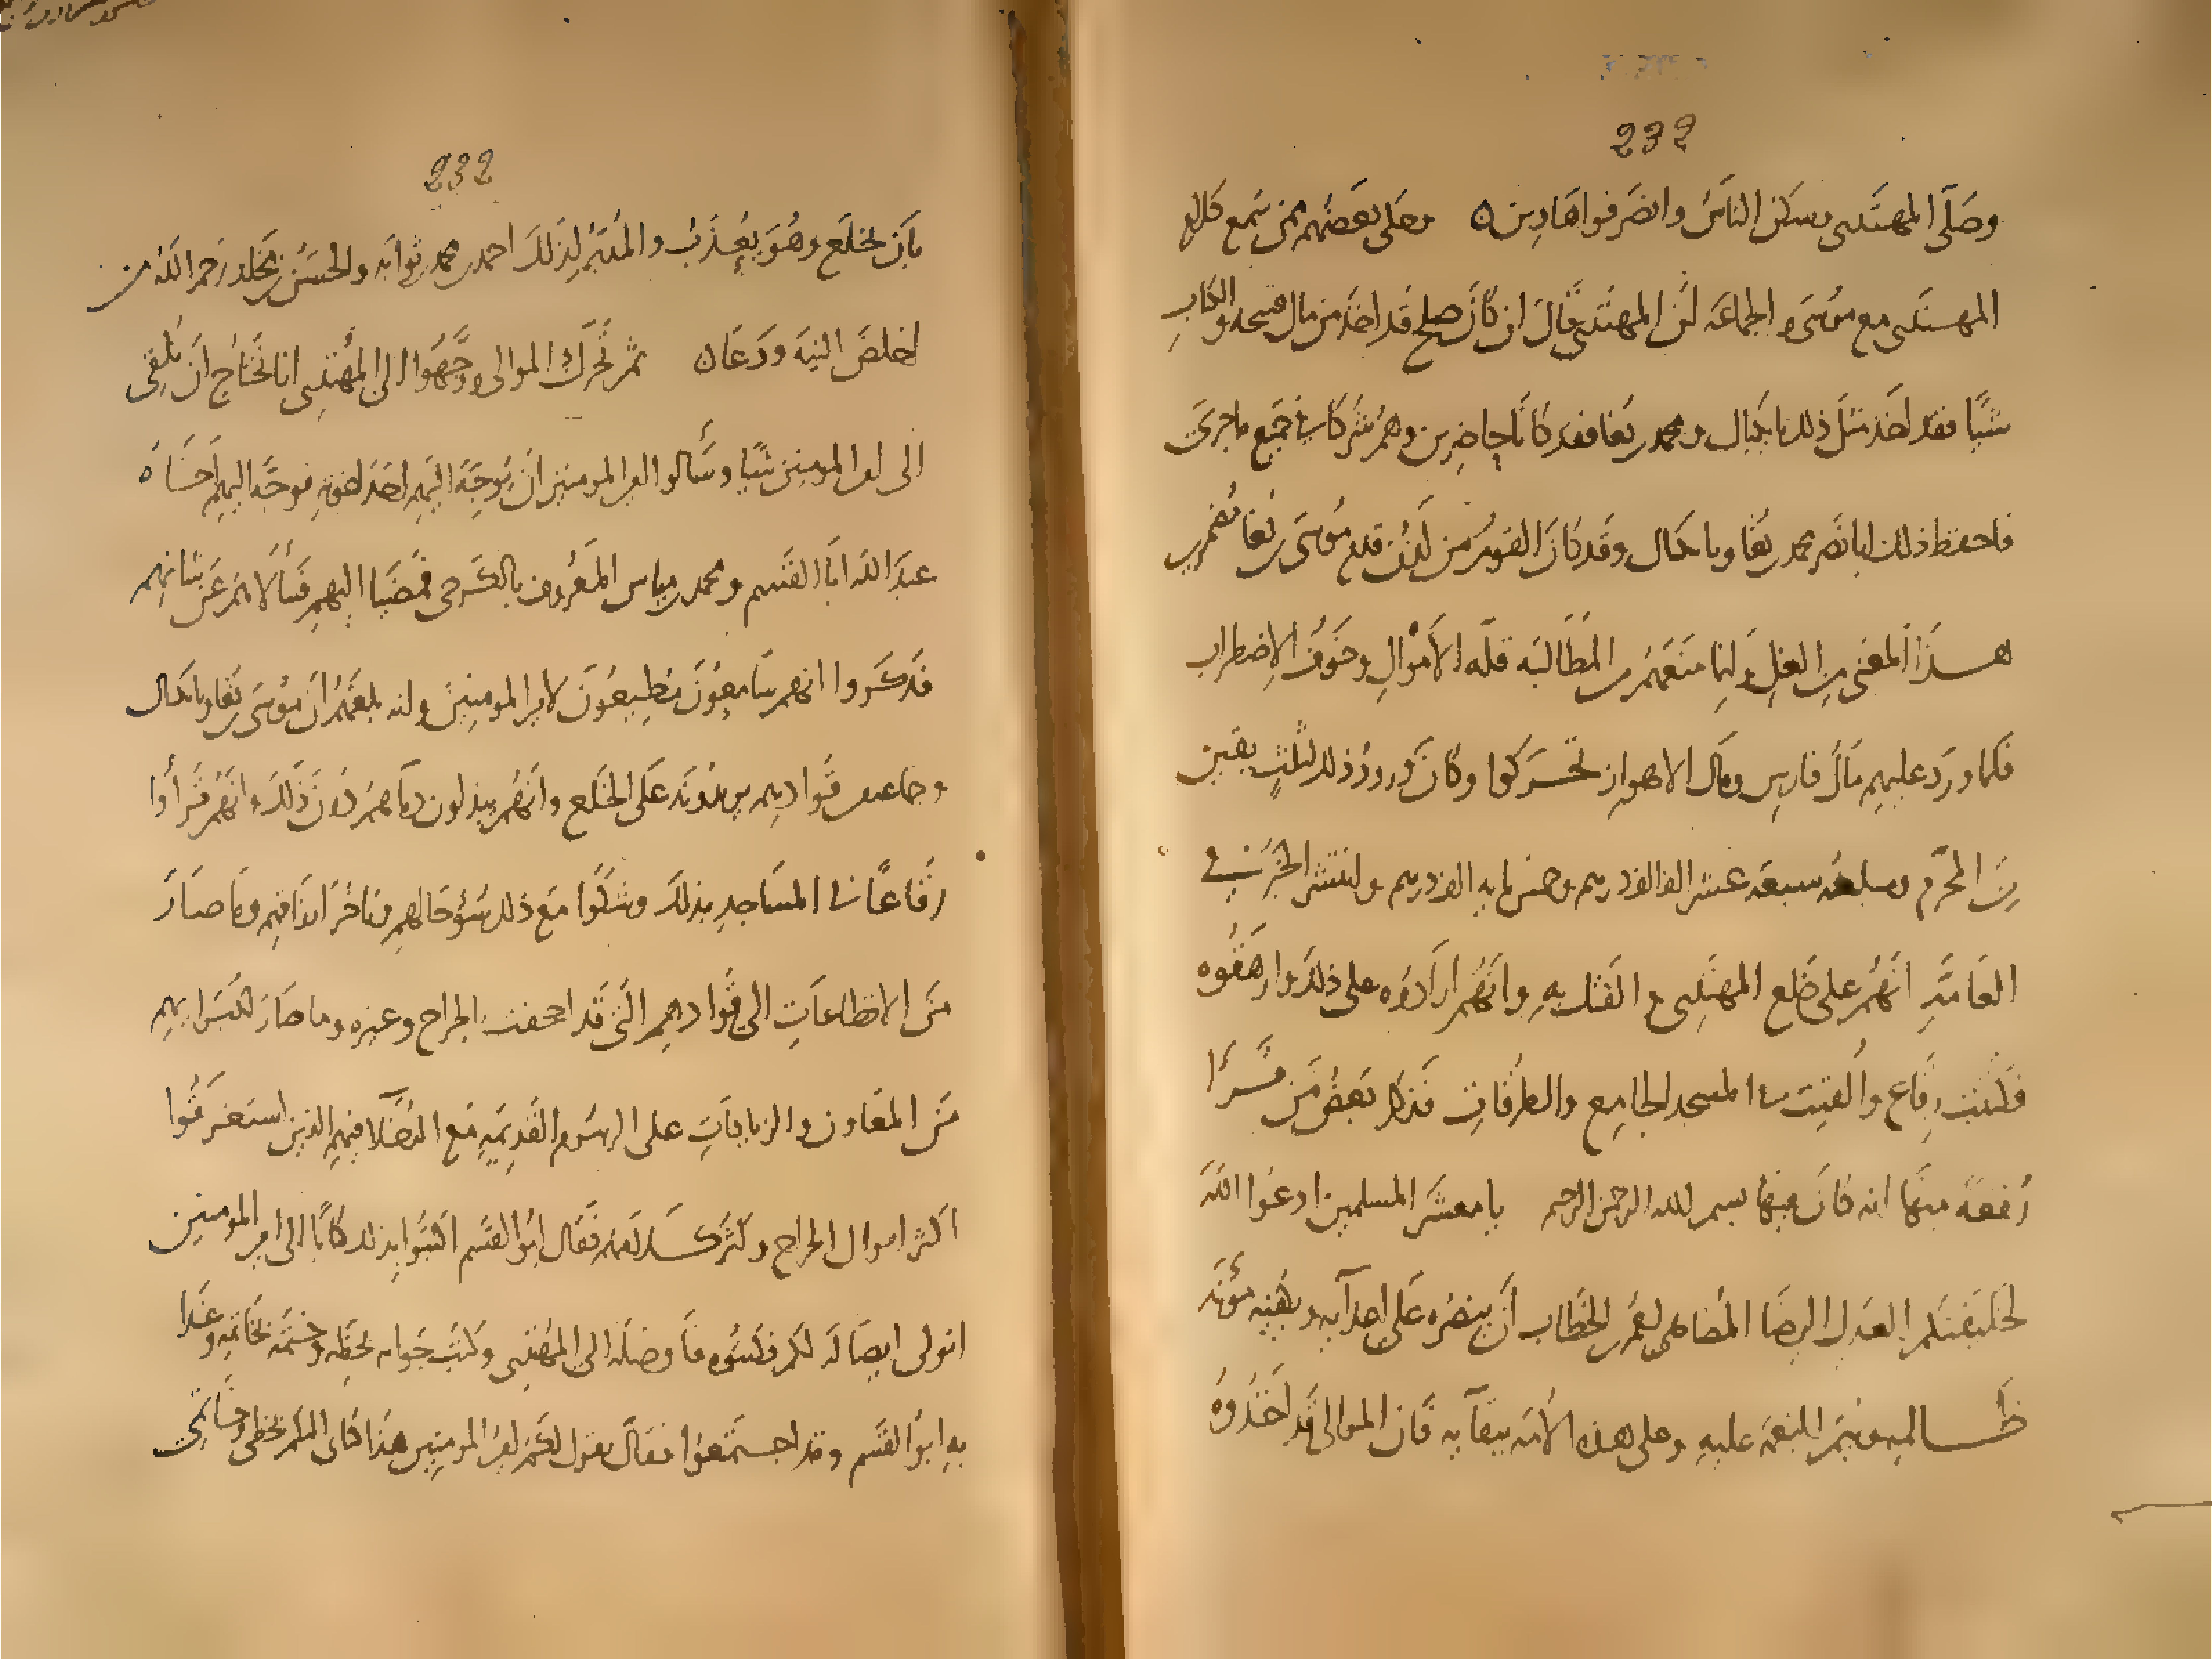 232
وصَلَّى المهتدى فسكن الناسُ وانصرفوا هَادِين ٥ وحكى بعضهم ممن سَمِع كلام
المهتدى مع موسى والجماعَه أنّ المهتدى قال ان كان صلح قد اخذ من مال قبيحه والكتاب
شيًّا فقد اخذ مثل ذلك بايكبال ومحمد بن بغا فقد كانا حاضرين وهم شركا فى جميع ما جرى
فاحفظ ذلك ابا نصر محمد بن بغا وبايكبال وقد كان القوم من لدن قدم موسى بن بغا مضمرين
هذا المعنى من العزل وانما منعهم من المطالبه قله الأموال وخوف الاضطراب
فلما ورد عليهم مال فارس ومال الاهواز تحركوا وكان ورود ذلك لثلث بقين
من المحرم ومبلغه سبعه عشر الف الف درهم وخمس مايه الف درهم وانتشر الخبر فى
العامّه انهم على خلع المهتدى والفتك به وانهم ارادوه على ذلك وارهقوه
فكتبت رقاع والقيت فى المسجد الجامع والطرقات فذكر بعض من قرا
رقعه منها انه كان فيها بسم الله الرحمن الرحيم يا معشر المسلمين ادعوا الله
لخليفتكم العدل الرضا المضاهى لعمر بن الخطاب أن ينصره على اعدآيه ويكفيه مؤنة
ظالميه ويتم النعمه عليه وعلى هذه الأمه ببقآيه فان الموالى قد اخذوه
232
بان يخلع وهو يعذب والمدبر لذلك احمد بن محمد بن ثوابه والحسن بن مخلد رحم الله من
اخلص النيه ودعا ٥ ثم تحرك الموالى ووجهوا الى المهتدى انا نحتاج أن نلقى
الى امير المومنين شيا وسألوا امير المومنين ان يوجه اليهم احد اخوته فوجه اليهم اخاه
عبد الله ابا القسم ومحمد بن مباس المعروف بالكرخى فمضيا اليهم فسألاهم عن شانهم
فذكروا انهم سامعون مطيعون لامير المومنين وانه بلغهم أن موسى بن بغا وبايكبال
وجماعه من قوادهم يريدونه على الخلع وانهم يبذلون دماهم دون ذلك وانهم قرأوا
رقاعًا فى المساجد بذلك وشكوا مع ذلك سوء حالهم وتاخر ارزاقهم وما صار
من الاقطاعات الى قوادهم التى قد اجحفت بالخراج وغيره وما صار لكبرايهم
من المعاون والزيادات على الرسوم القديمه مع الدخلا فيهم الذين استغرقوا
اكثر اموال الخراج وكثر كلامهم فقال ابو القسم اكتبوا بذلك كتابًا الى امير المومنين
اتولى ايصاله لكم فكتبوه فأوصله الى المهتدى وكتب جوابه بخطه وختمه بخاتمه وغدا
به ابو القسم وقد اجتمعوا فقال يقول لكم امير المومنين هذا كتابى اليكم بخطى وخاتمى